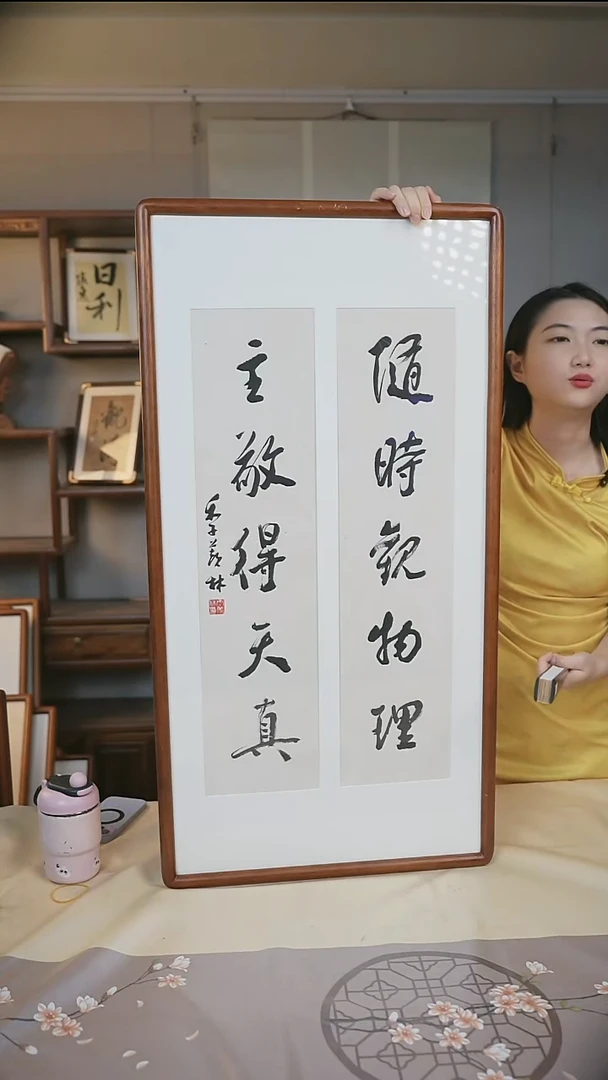 隨時觀物理
主敬得天真
季羨林
日利